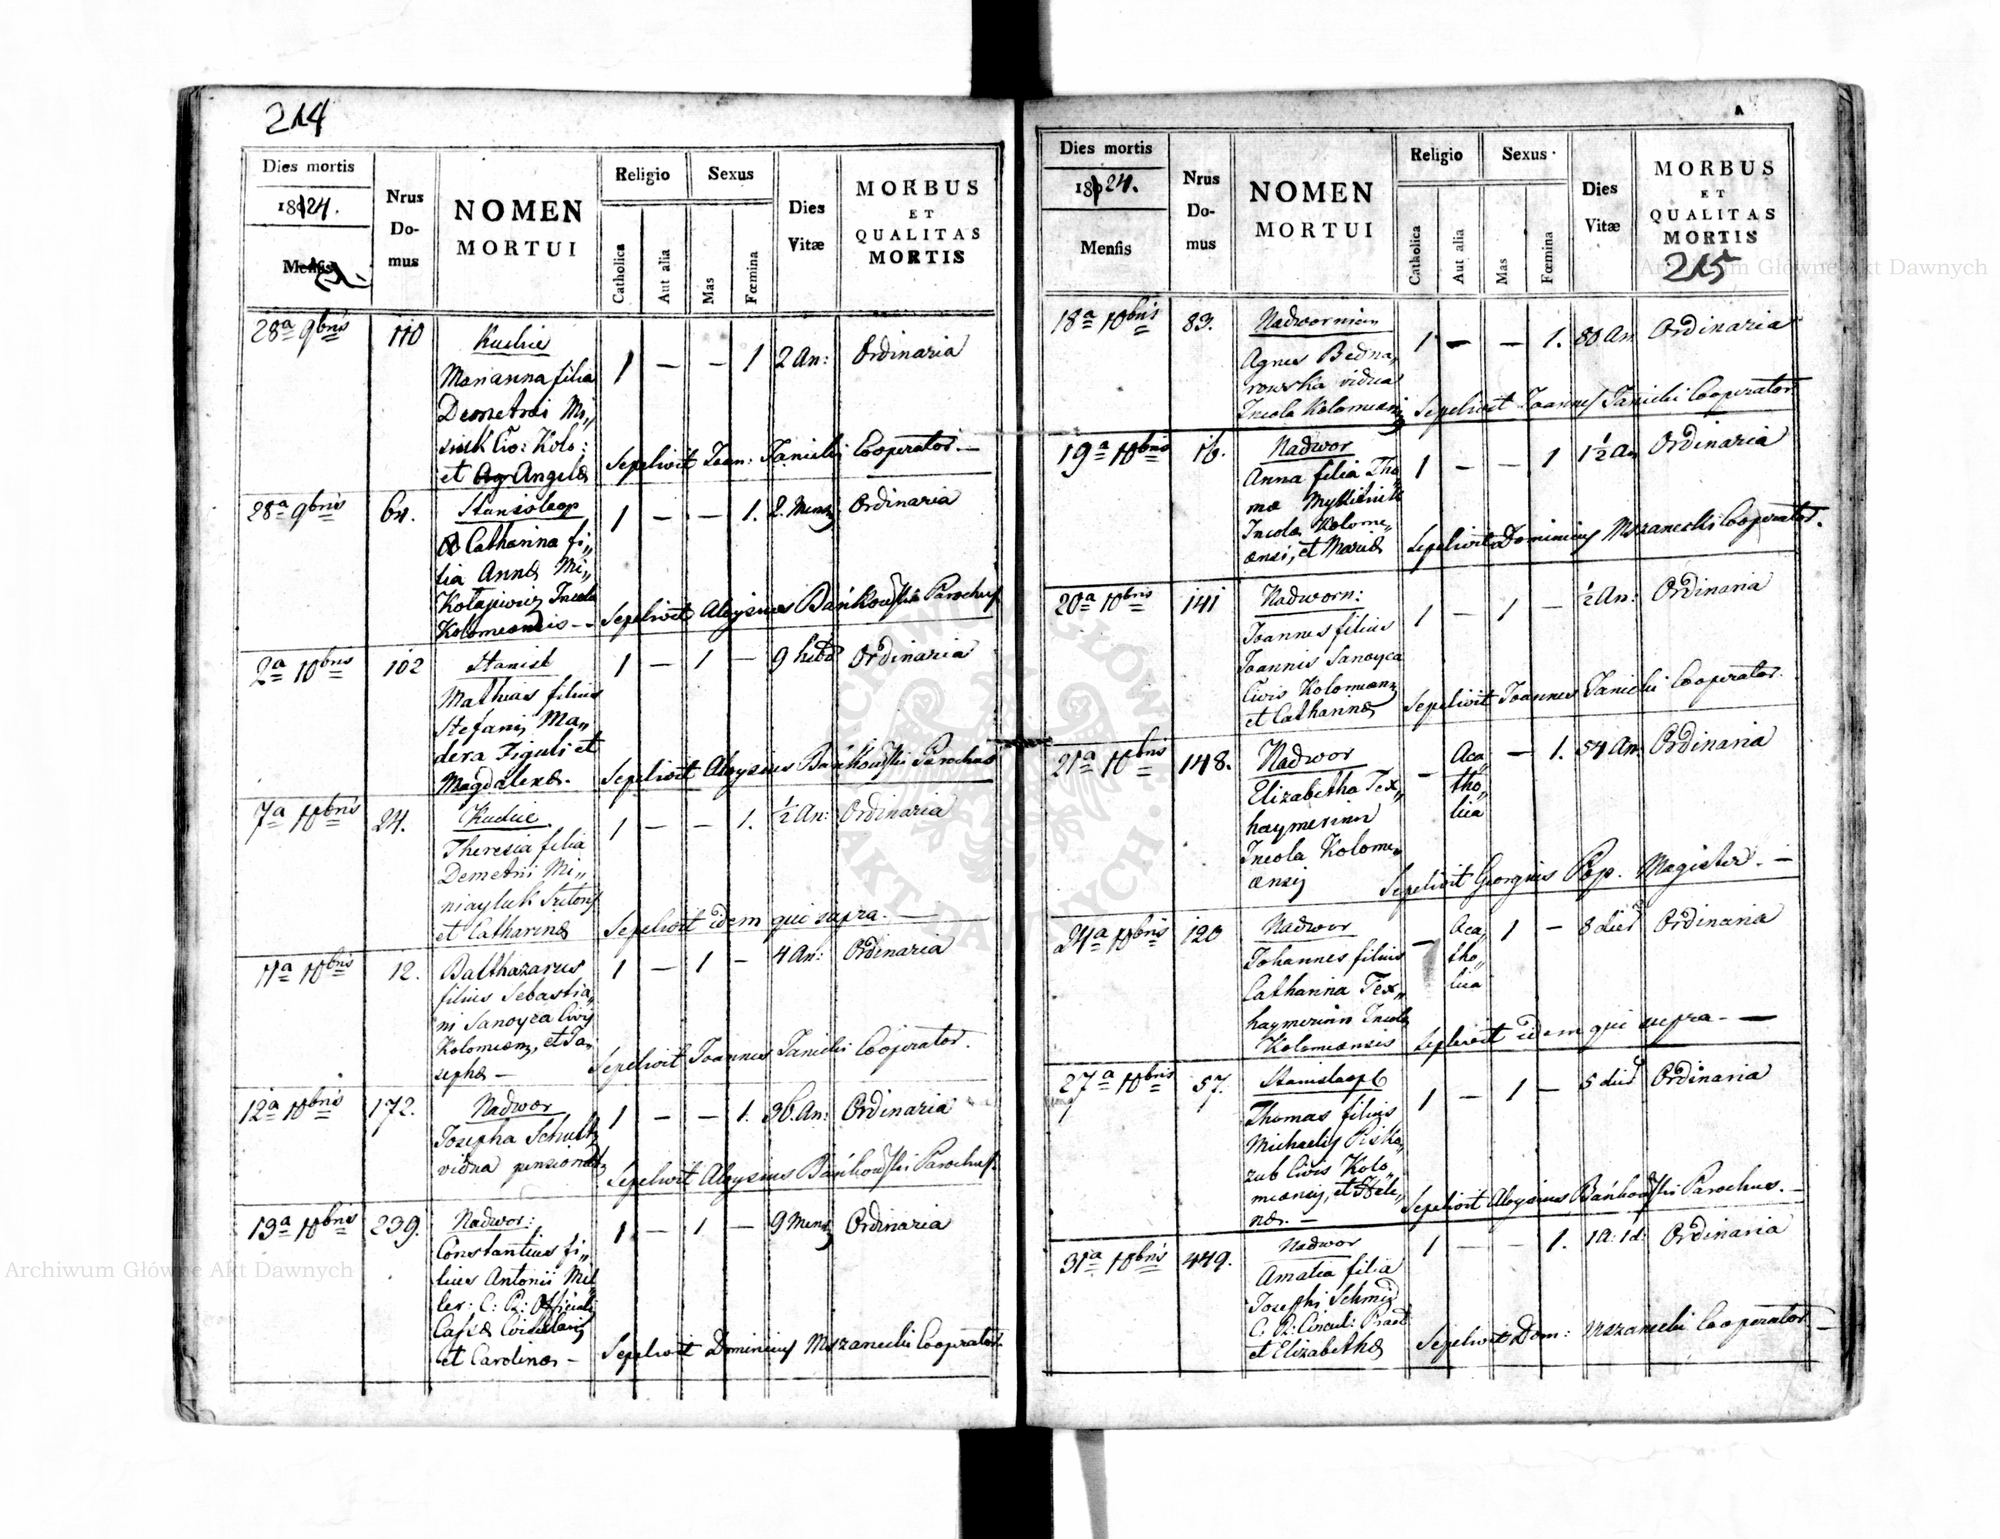 214
Dies mortis
1824.
Mensis
Nrus
Do-
mus
NOMEN
MORTUI
Religio
Catholica
Aut alia
Sexus
Mas
Fœmina
Dies
Vitæ
MORBUS
ET
QUALITAS
MORTIS
28a 9bris 110 Kudlie 1 — — 1 2 An: Ordinaria
Marianna filia
Demetrii Mi„
siuk Civ: Kolo:
et Angelæ
Sepelivit Joan: Janicki Cooperator. —
28a 9bris 64. Stanislaop 1 — — 1. 2. Mens Ordinaria
Catharina fi„
lia Annæ Mi„
kołajewicz Incola
Kolomeensis - -
Sepelivit Aloysius Bańkowski Parochus
2a 10bris 102 Stanisl 1 — 1 — 9 hebd Ordinaria
Mathias filius
Stefani Ma„
dera Figuli et
Magdalenæ.
Sepelivit Aloysius Bańkowski Parochus
7a 10bris 24. Kudlie 1 — — 1. ½ An: Ordinaria
Theresia filia
Demetrii Mi„
niayluk
et Catharinæ
Sepelivit idem qui supra. —
11a 10bris 12. Balthazarus 1 — 1 — 4 An: Ordinaria
filius Sebastia„
ni Sanoyca Civis
Kolomeens, et Jo„
sephæ —
Sepelivit Joannes Janicki Cooperator.
12a 10bris 172. Nadwor 1 — — 1. 36. An: Ordinaria
Josepha Schultz
vidua
Sepelivit Aloysius Bańkowski Parochus.
13a 10bris 239. Nadwor: 1 — 1 — 9 Mens Ordinaria
Constantius fi„
lius Antonii Mil
ler: C: R: Officialis
Cassæ
et Carolinæ —
Sepelivit Dominicus Mszanecki Cooperator.
Dies mortis
1824.
Mensis
Nrus
Do-
mus
NOMEN
MORTUI
Religio
Catholica
Aut alia
Sexus
Mas
Fœmina
Dies
Vitæ
MORBUS
ET
QUALITAS
MORTIS
215
18a 10bris 83. Nadwornian 1 — — 1. 80 An Ordinaria
Agnes Bedna„
rowska vidua
Incola Kolomeens
Sepelivit Joannes Janicki Cooperator
19a 10bris 16. Nadwor 1 — — 1 1½ An Ordinaria
Anna filia Tho„
mæ
Incolæ Kolome„
ensi, et Mariæ
Sepelivit Dominicus Mszanecki Cooperator.
20a 10bris 141 Nadworn: 1 — 1 — ½ An: Ordinaria
Joannes filius
Joannis Sanoyca
Civis Kolomeens
et Catharinæ
Sepelivit Joannes Janicki Cooperator.
21a 10bris 148. Nadwor — Aca„ — 1. 54 An. Ordinaria
Elizabetha Tex„ tho„
haymerinn lica
Incola Kolome„
ensis
Sepelivit Georgius Pop. Magister. —
24a 10bris 120 Nadwor — Aca„ 1 — 8 dies Ordinaria
Johannes filius tho„
Catharina Tex„ lica
haymerinn Incola
Kolomeensis
Sepelivit idem qui supra. —
27a 10bris 57. Stanislaop 1 — 1 — 5 dies Ordinaria
Thomas filius
Michaelis Pisko„
zub Civis Kolo„
meensis, et Hele„
næ. —
Sepelivit Aloysius Bańkowski Parochus. —
31a 10bris 449. Nadwor 1 — — 1. 1 A: 1 d: Ordinaria
Amalia filia
Josephi Schmid
C: R: Circul:
et Elizabethæ
Sepelivit Dom: Mszanecki Cooperator. —
Archiwum Główne Akt Dawnych
Archiwum Główne Akt Dawnych
ARCHIWUM GŁÓWNE AKT DAWNYCH